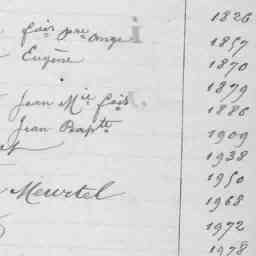 1826
fois pre ange 1857
Eugène 1870
1879
Jean Mie fois 1886
Jean Bapte 1909
1938
1950
Meurtel 1968
1972
1978